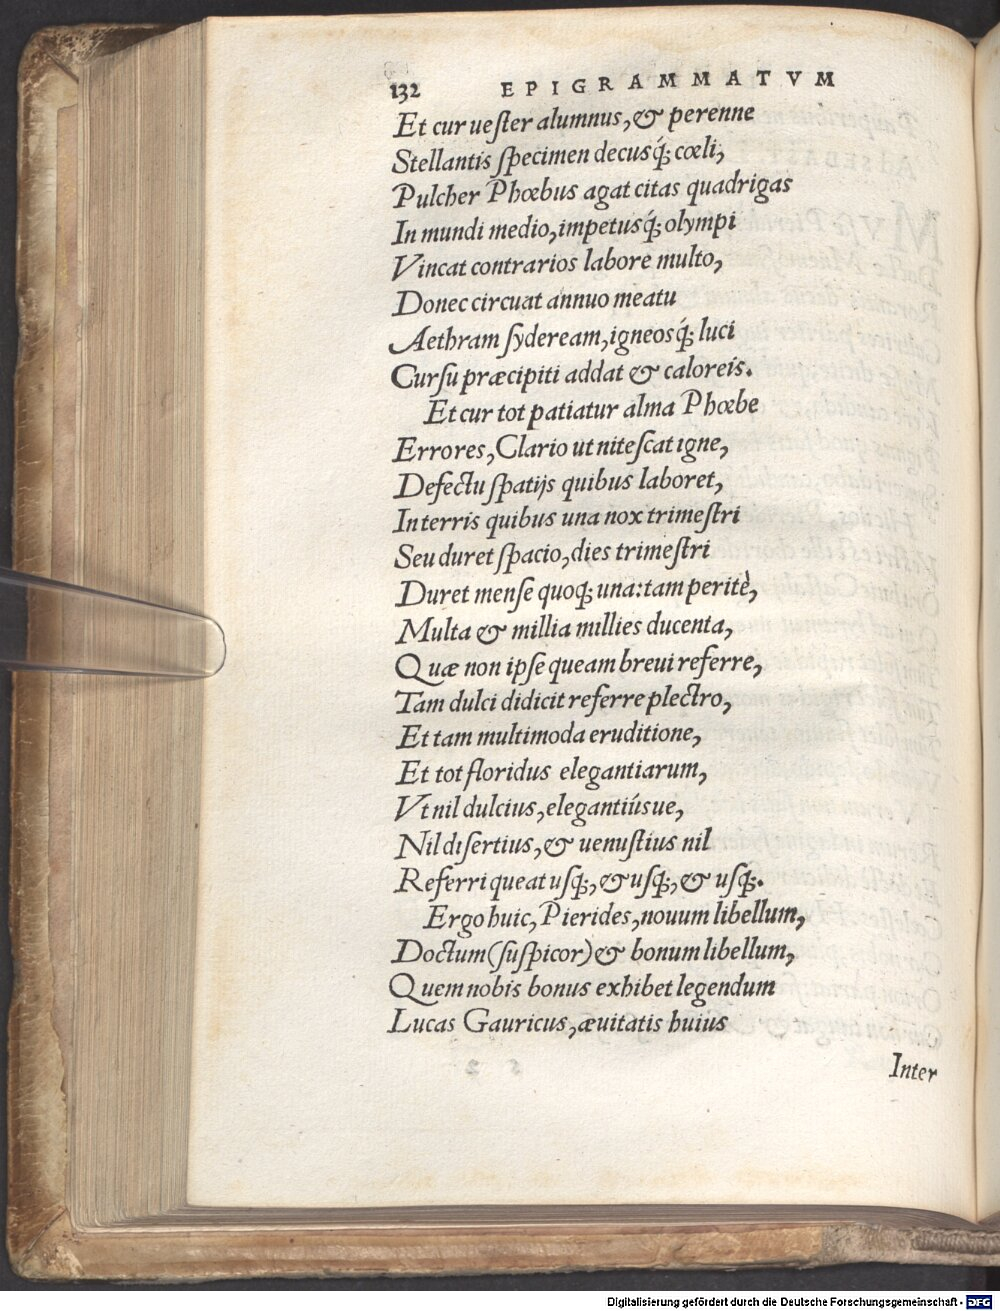 132 EPIGRAMMATVM
Et cur uester alumnus, & perenne
Stellantis specimen decusq́; cœli,
Pulcher Phœbus agat citas quadrigas
In mundi medio, impetusq́; olympi
Vincat contrarios labore multo,
Donec circuat annuo meatu
Aethram sydeream, igneosq́; luci
Cursu præcipiti addat & caloreis.
Et cur tot patiatur alma Phœbe
Errores, Clario ut nitescat igne,
Defectu spatijs quibus laboret,
In terris quibus una nox trimestri
Seu duret spacio, dies trimestri
Duret mense quoq; una: tam peritè,
Multa & millia millies ducenta,
Quæ non ipse queam breui referre,
Tam dulci didicit referre plectro,
Et tam multimoda eruditione,
Et tot floridus elegantiarum,
Vt nil dulcius, elegantiúsue,
Nil disertius, & uenustius nil
Referri queat usq;, & usq;, & usq;.
Ergo huic, Pierides, nouum libellum,
Doctum (suspicor) & bonum libellum,
Quem nobis bonus exhibet legendum
Lucas Gauricus, æuitatis huius
Inter
Digitalisierung gefördert durch die Deutsche Forschungsgemeinschaft - DFG